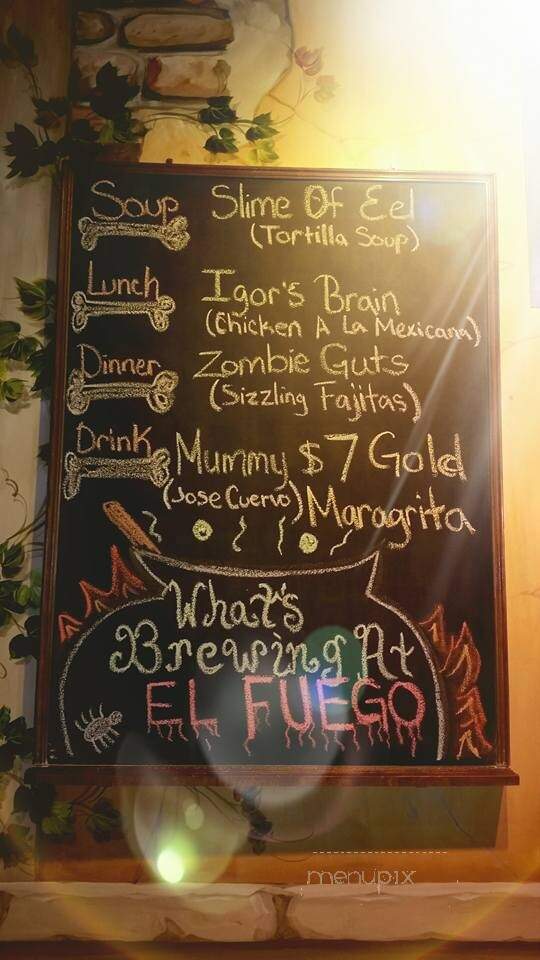 Soup Slime Of Eel
(Tortilla Soup)
Lunch Igor's Brain
(Chicken A La Mexicana)
Dinner Zombie Guts
(Sizzling Fajitas)
Drink Mummy $7 Gold
(Jose Cuervo) Maragrita
What's
Brewing At
EL FUEGO
menupix